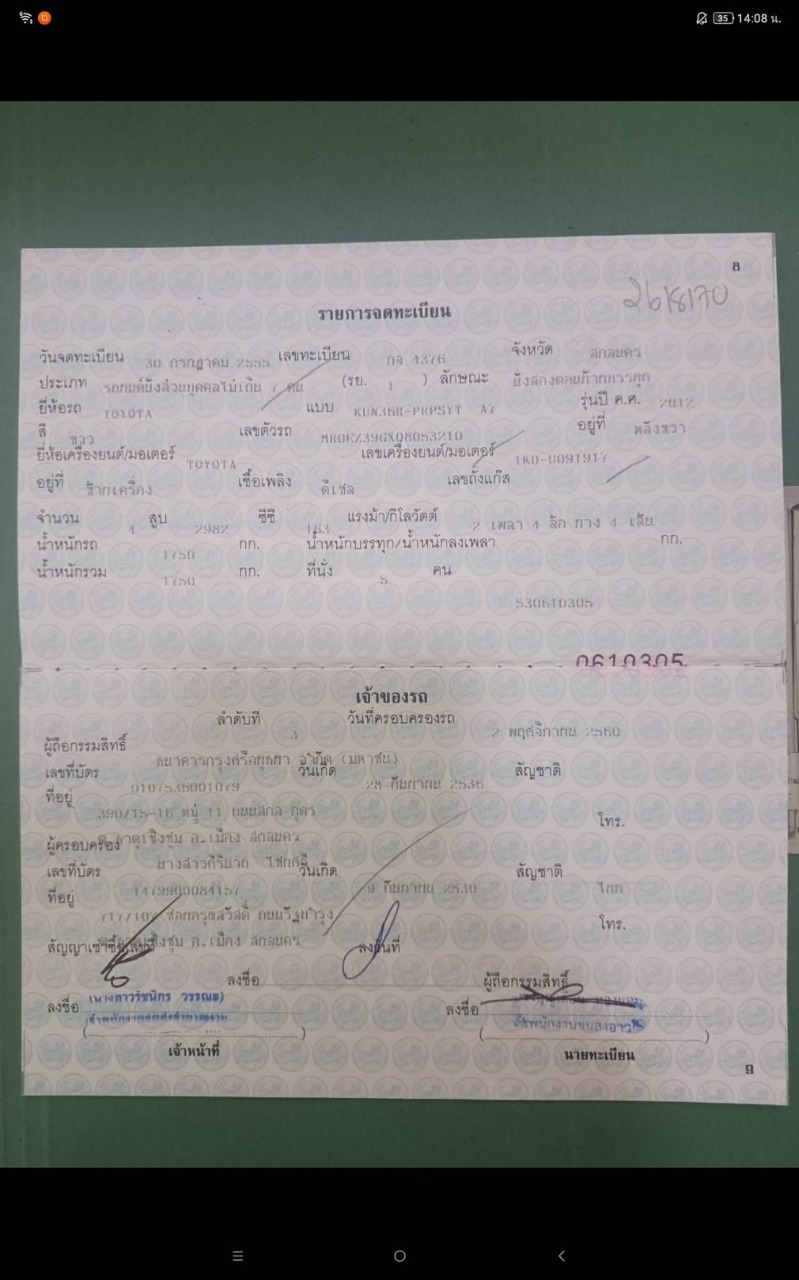 35 14:08 น.
8
2618170
รายการจดทะเบียน
วันจดทะเบียน 30 กรกฎาคม 2555 เลขทะเบียน กจ 4376 จังหวัด สกลนคร
ประเภท รถยนต์นั่งส่วนบุคคลไม่เกิน 7 คน (รย. 1 ) ลักษณะ นั่งสองตอนท้ายบรรทุก
ยี่ห้อรถ TOYOTA แบบ KUN36R-PRPSYT A7 รุ่นปี ค.ศ. 2012
สี ขาว เลขตัวรถ MR0EZ39GX08053210 อยู่ที่ หลังขวา
ยี่ห้อเครื่องยนต์/มอเตอร์ TOYOTA เลขเครื่องยนต์/มอเตอร์ 1KD-U091917
อยู่ที่ ซ้ายเครื่อง เชื้อเพลิง ดีเซล เลขถังแก๊ส
จำนวน 4 สูบ 2982 ซีซี 163 แรงม้า/กิโลวัตต์ 2 เพลา 4 ล้อ ยาง 4 เส้น
น้ำหนักรถ 1750 กก. น้ำหนักบรรทุก/น้ำหนักลงเพลา กก.
น้ำหนักรวม 1750 กก. ที่นั่ง 5 คน
530610305
0610305
เจ้าของรถ
ลำดับที่ 3 วันที่ครอบครองรถ 2 พฤศจิกายน 2560
ผู้ถือกรรมสิทธิ์ ธนาคารกรุงศรีอยุธยา จำกัด (มหาชน)
เลขที่บัตร 0107536001079 วันเกิด 28 กันยายน 2536 สัญชาติ
ที่อยู่ 390/15-16 หมู่ 11 ถนนสกล-อุดร โทร.
ต.ธาตุเชิงชุม อ.เมือง สกลนคร
ผู้ครอบครอง นางสาวศิรินาถ
เลขที่บัตร 1479900084157 วันเกิด 9 กันยายน 2530 สัญชาติ ไทย
ที่อยู่ 717/107 ถนนรัฐบำรุง โทร.
สัญญาเช่าซื้อเลขที่ เชิงชุม อ.เมือง สกลนคร ลงวันที่
ลงชื่อ ผู้ถือกรรมสิทธิ์
ลงชื่อ (นางสาวรัชนิกร วรรณะ) ลงชื่อ
เจ้าหน้าที่ นายทะเบียน
9